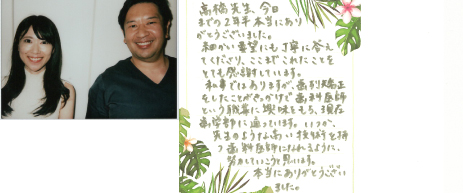 高橋先生、今日
までの2年半本当にあり
がとうございました。
細かい要望にも丁寧に答え
てくださり、ここまでこれたことを
とても感謝しています。
私事ではありますが、歯列矯正
をしたことがきっかけで歯科医師
という職業に興味をもち、現在
歯学部に通っています。いつか、
先生のような高い技術を持
つ歯科医師になれるように、
努力していこうと思います。
本当にありがとうござい
ました。